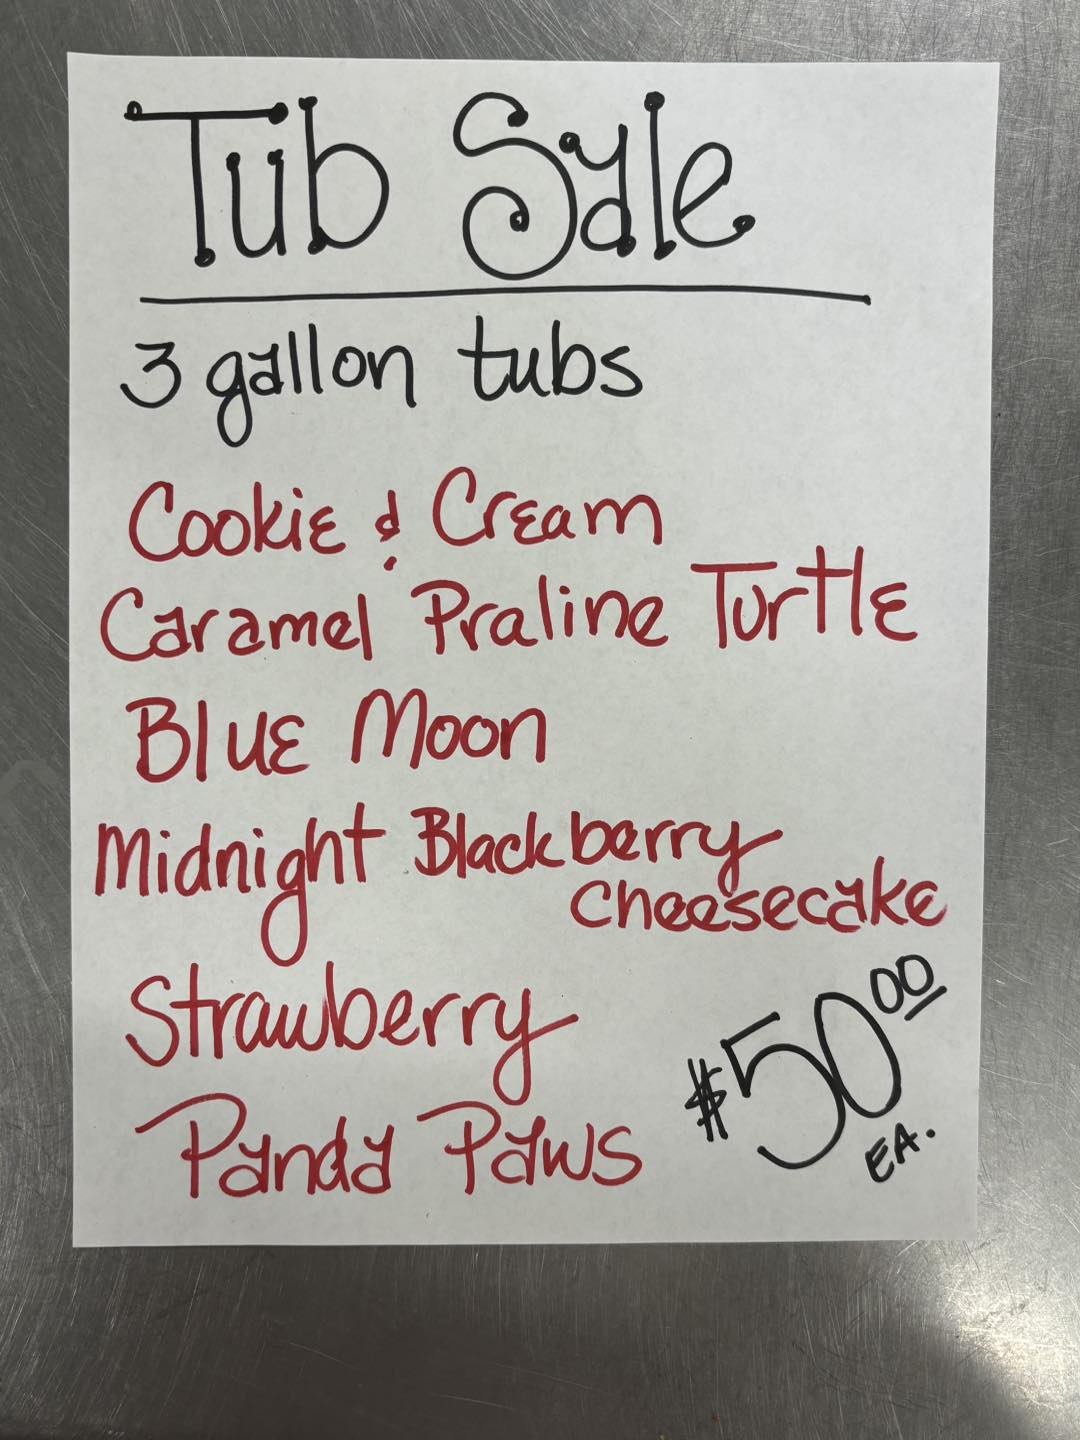 Tub Sale
3 gallon tubs
Cookie & Cream
Caramel Praline Turtle
Blue Moon
Midnight Blackberry
Cheesecake
Strawberry
Panda Paws
$50.00
EA.